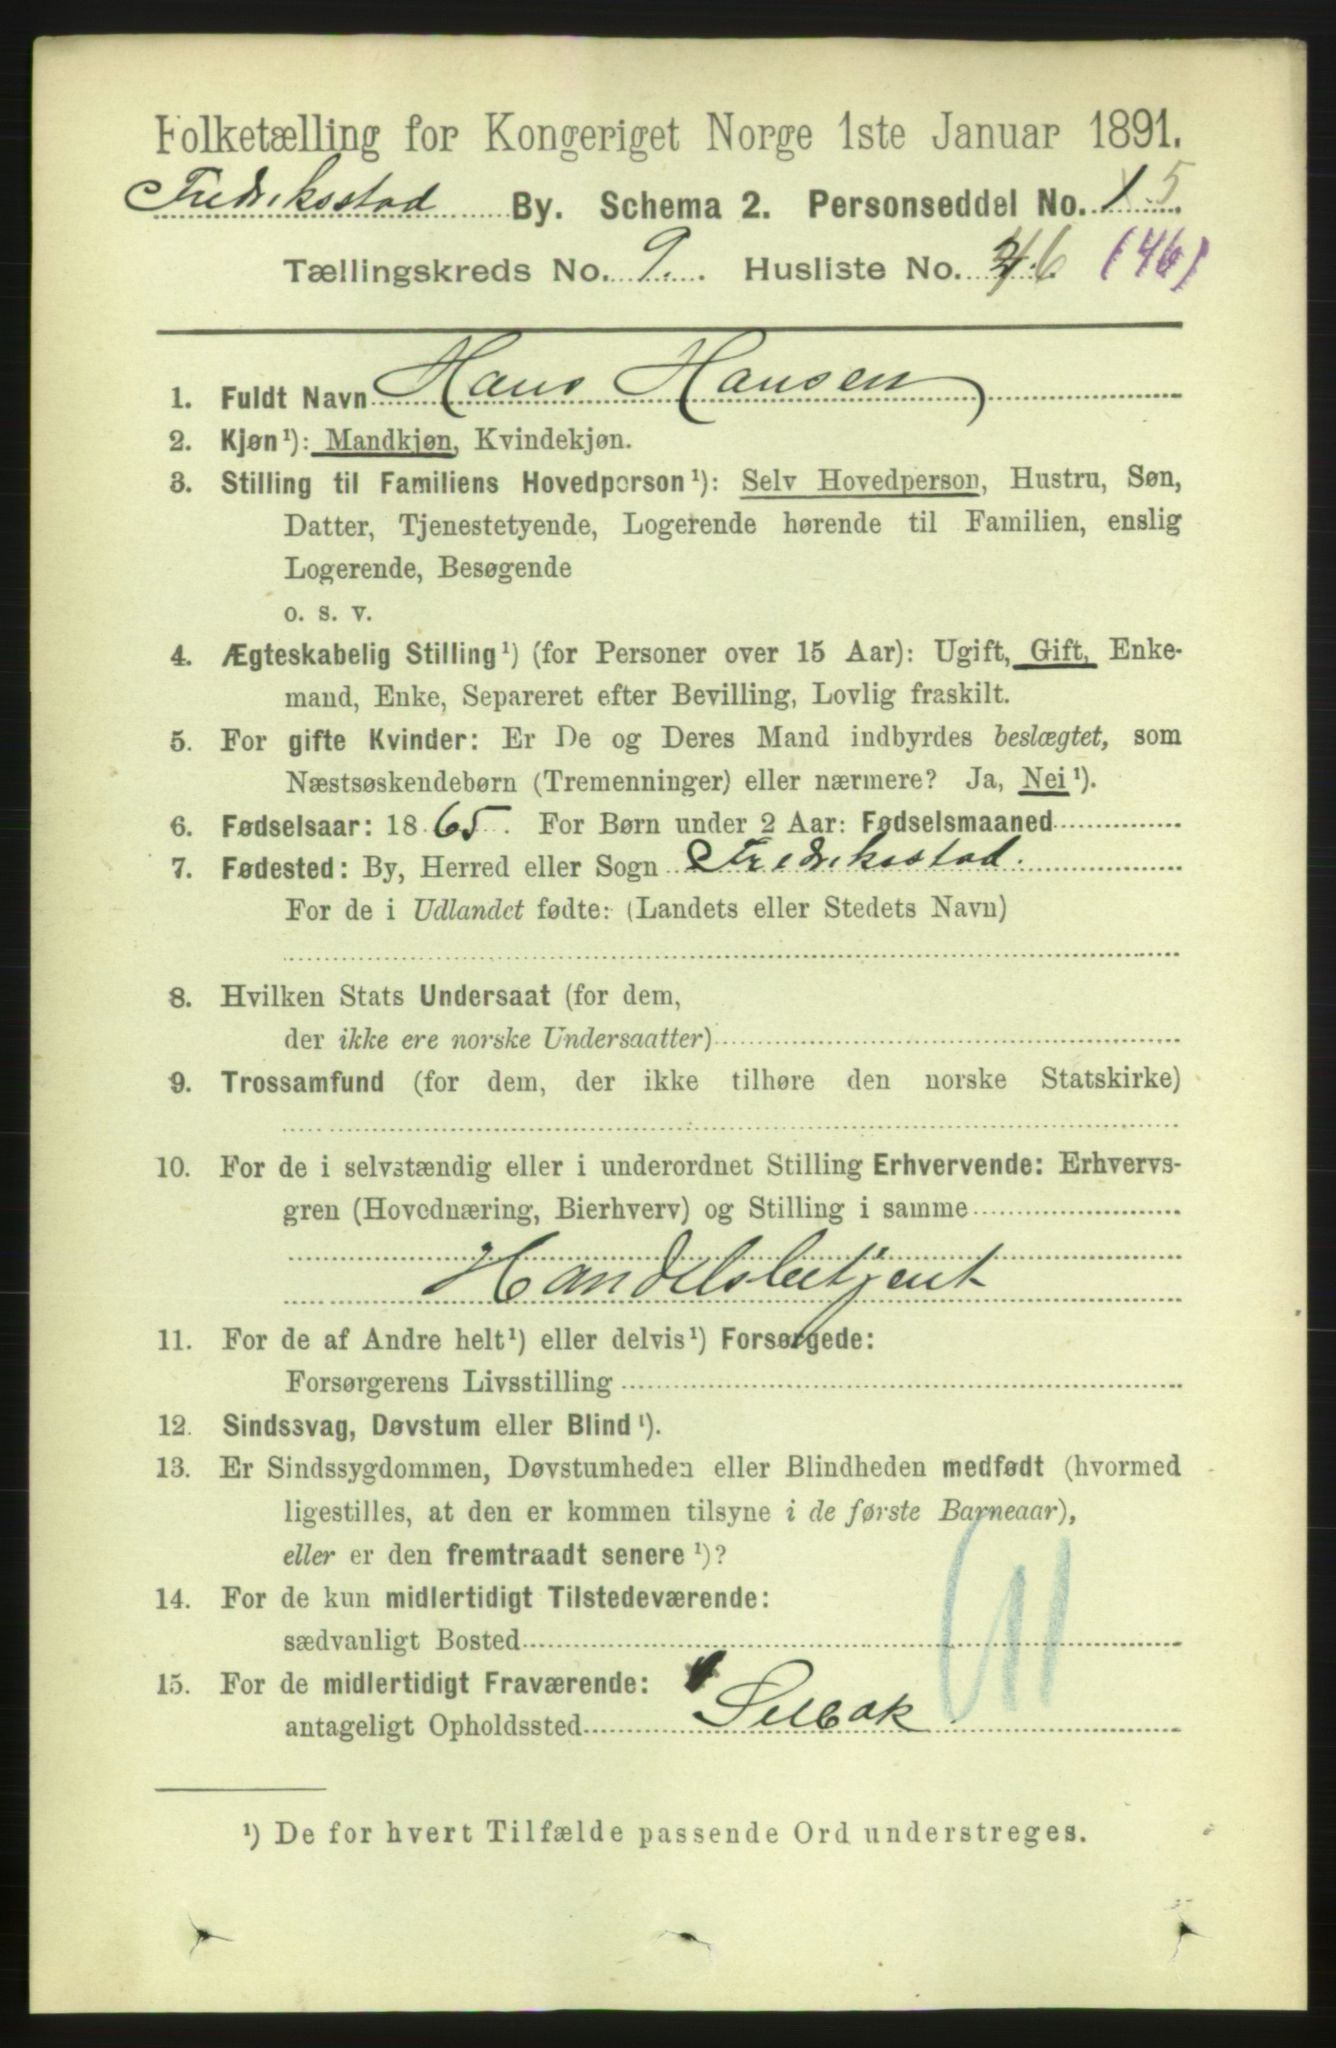 Folketælling for Kongeriget Norge 1ste Januar 1891.
Fredriksstad By. Schema 2. Personseddel No. 1 5
Tællingskreds No. 9. Husliste No. 46 (46)
1. Fuldt Navn Hans Hansen
2. Kjøn¹): Mandkjøn, Kvindekjøn.
3. Stilling til Familiens Hovedperson¹): Selv Hovedperson, Hustru, Søn,
Datter, Tjenestetyende, Logerende hørende til Familien, enslig
Logerende, Besøgende
o. s. v.
4. Ægteskabelig Stilling¹) (for Personer over 15 Aar): Ugift, Gift, Enke-
mand, Enke, Separeret efter Bevilling, Lovlig fraskilt.
5. For gifte Kvinder: Er De og Deres Mand indbyrdes beslægtet, som
Næstsøskendebørn (Tremenninger) eller nærmere? Ja, Nei¹).
6. Fødselsaar: 1865. For Børn under 2 Aar: Fødselsmaaned
7. Fødested: By, Herred eller Sogn Fredriksstad.
For de i Udlandet fødte: (Landets eller Stedets Navn)
8. Hvilken Stats Undersaat (for dem,
der ikke ere norske Undersaatter)
9. Trossamfund (for dem, der ikke tilhøre den norske Statskirke)
10. For de i selvstændig eller i underordnet Stilling Erhvervende: Erhvervs-
gren (Hovednæring, Bierhverv) og Stilling i samme
Handelsbetjent
11. For de af Andre helt¹) eller delvis¹) Forsørgede:
Forsørgerens Livsstilling
12. Sindssvag, Døvstum eller Blind¹).
13. Er Sindssygdommen, Døvstumheden eller Blindheden medfødt (hvormed
ligestilles, at den er kommen tilsyne i de første Barneaar),
eller er den fremtraadt senere¹)?
14. For de kun midlertidigt Tilstedeværende:
sædvanligt Bosted
15. For de midlertidigt Fraværende:
antageligt Opholdssted Selbak
¹) De for hvert Tilfælde passende Ord understreges.